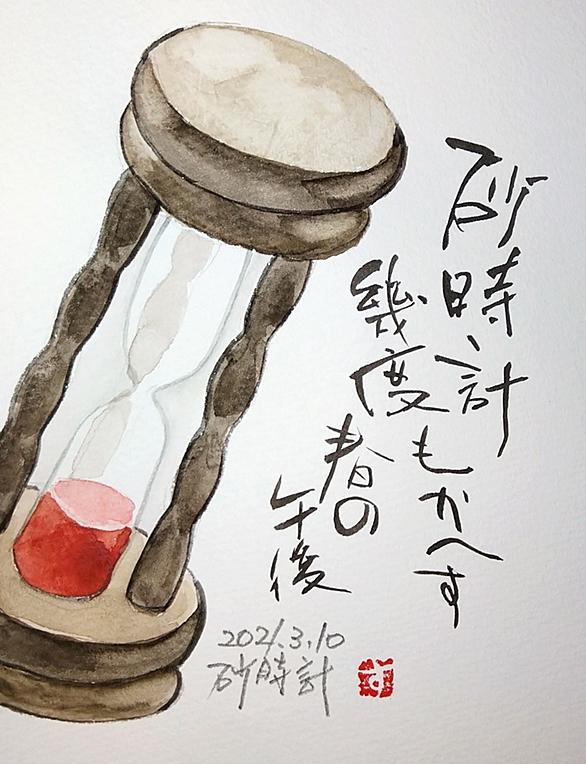 砂時計
幾度もかへす
春の
午後
2021.3.10
砂時計